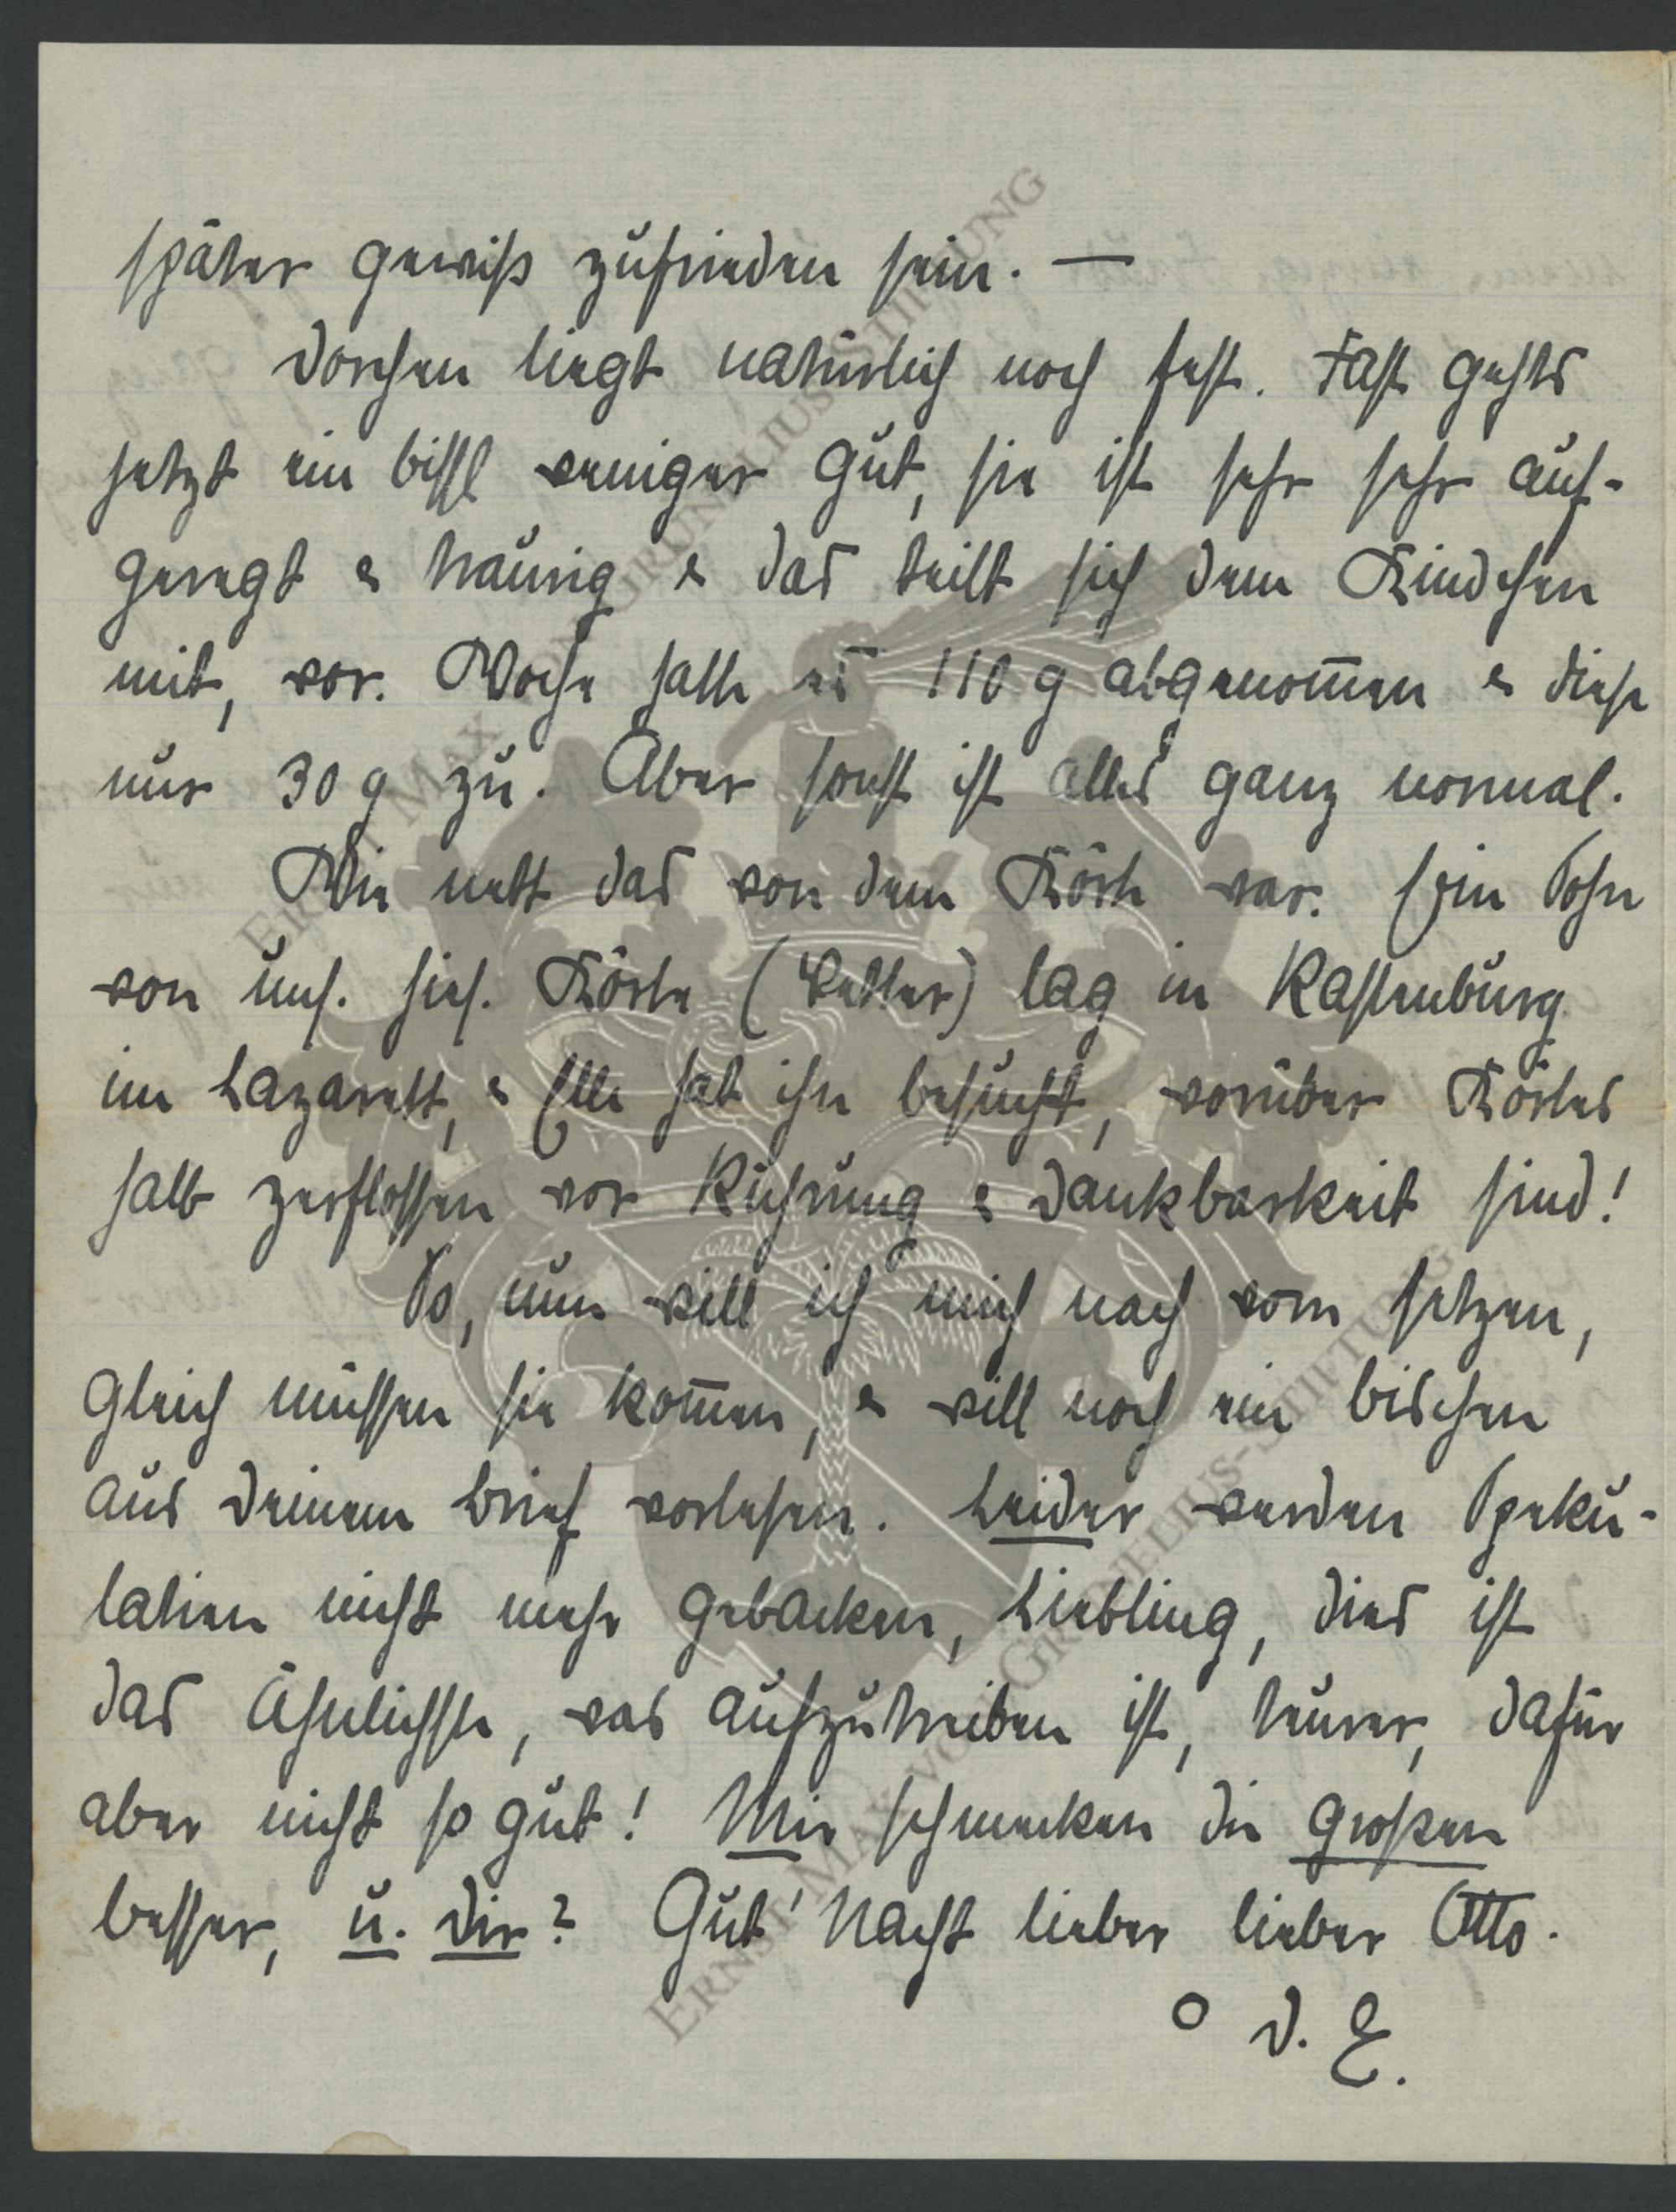 später gewiß zufrieden sein. —
Dorchen liegt natürlich noch fest. Fast gehts
jetzt ein bissl weniger gut, sie ist sehr sehr auf-
geregt & traurig & das teilt sich dem Kindchen
mit, vor. Woche hatte es 110 g abgenom̄en & diese
nur 30 g zu. Aber sonst ist alles ganz normal.
Wie nett das von dem Körte war. Ein Sohn
von uns. hies. Körte (Vetter) lag in Rastenburg
im Lazarett, & Elle hat ihn besucht, worüber Körtes
halb zerflossen vor Rührung & Dankbarkeit sind!
So, nun will ich mich nach vorn setzen,
gleich müssen sie kom̄en, & will noch ein bischen
aus Deinem Brief vorlesen. Leider werden Speku-
latien nicht mehr gebacken, Liebling, dies ist
das Ähnlichste, was aufzutreiben ist, teurer, dafür
aber nicht so gut! Mir schmecken die großen
besser, u. Dir? Gut' Nacht lieber lieber Otto.
O D. E.
ERNST MAX VON GRUNELIUS-STIFTUNG
ERNST MAX VON GRUNELIUS-STIFTUNG